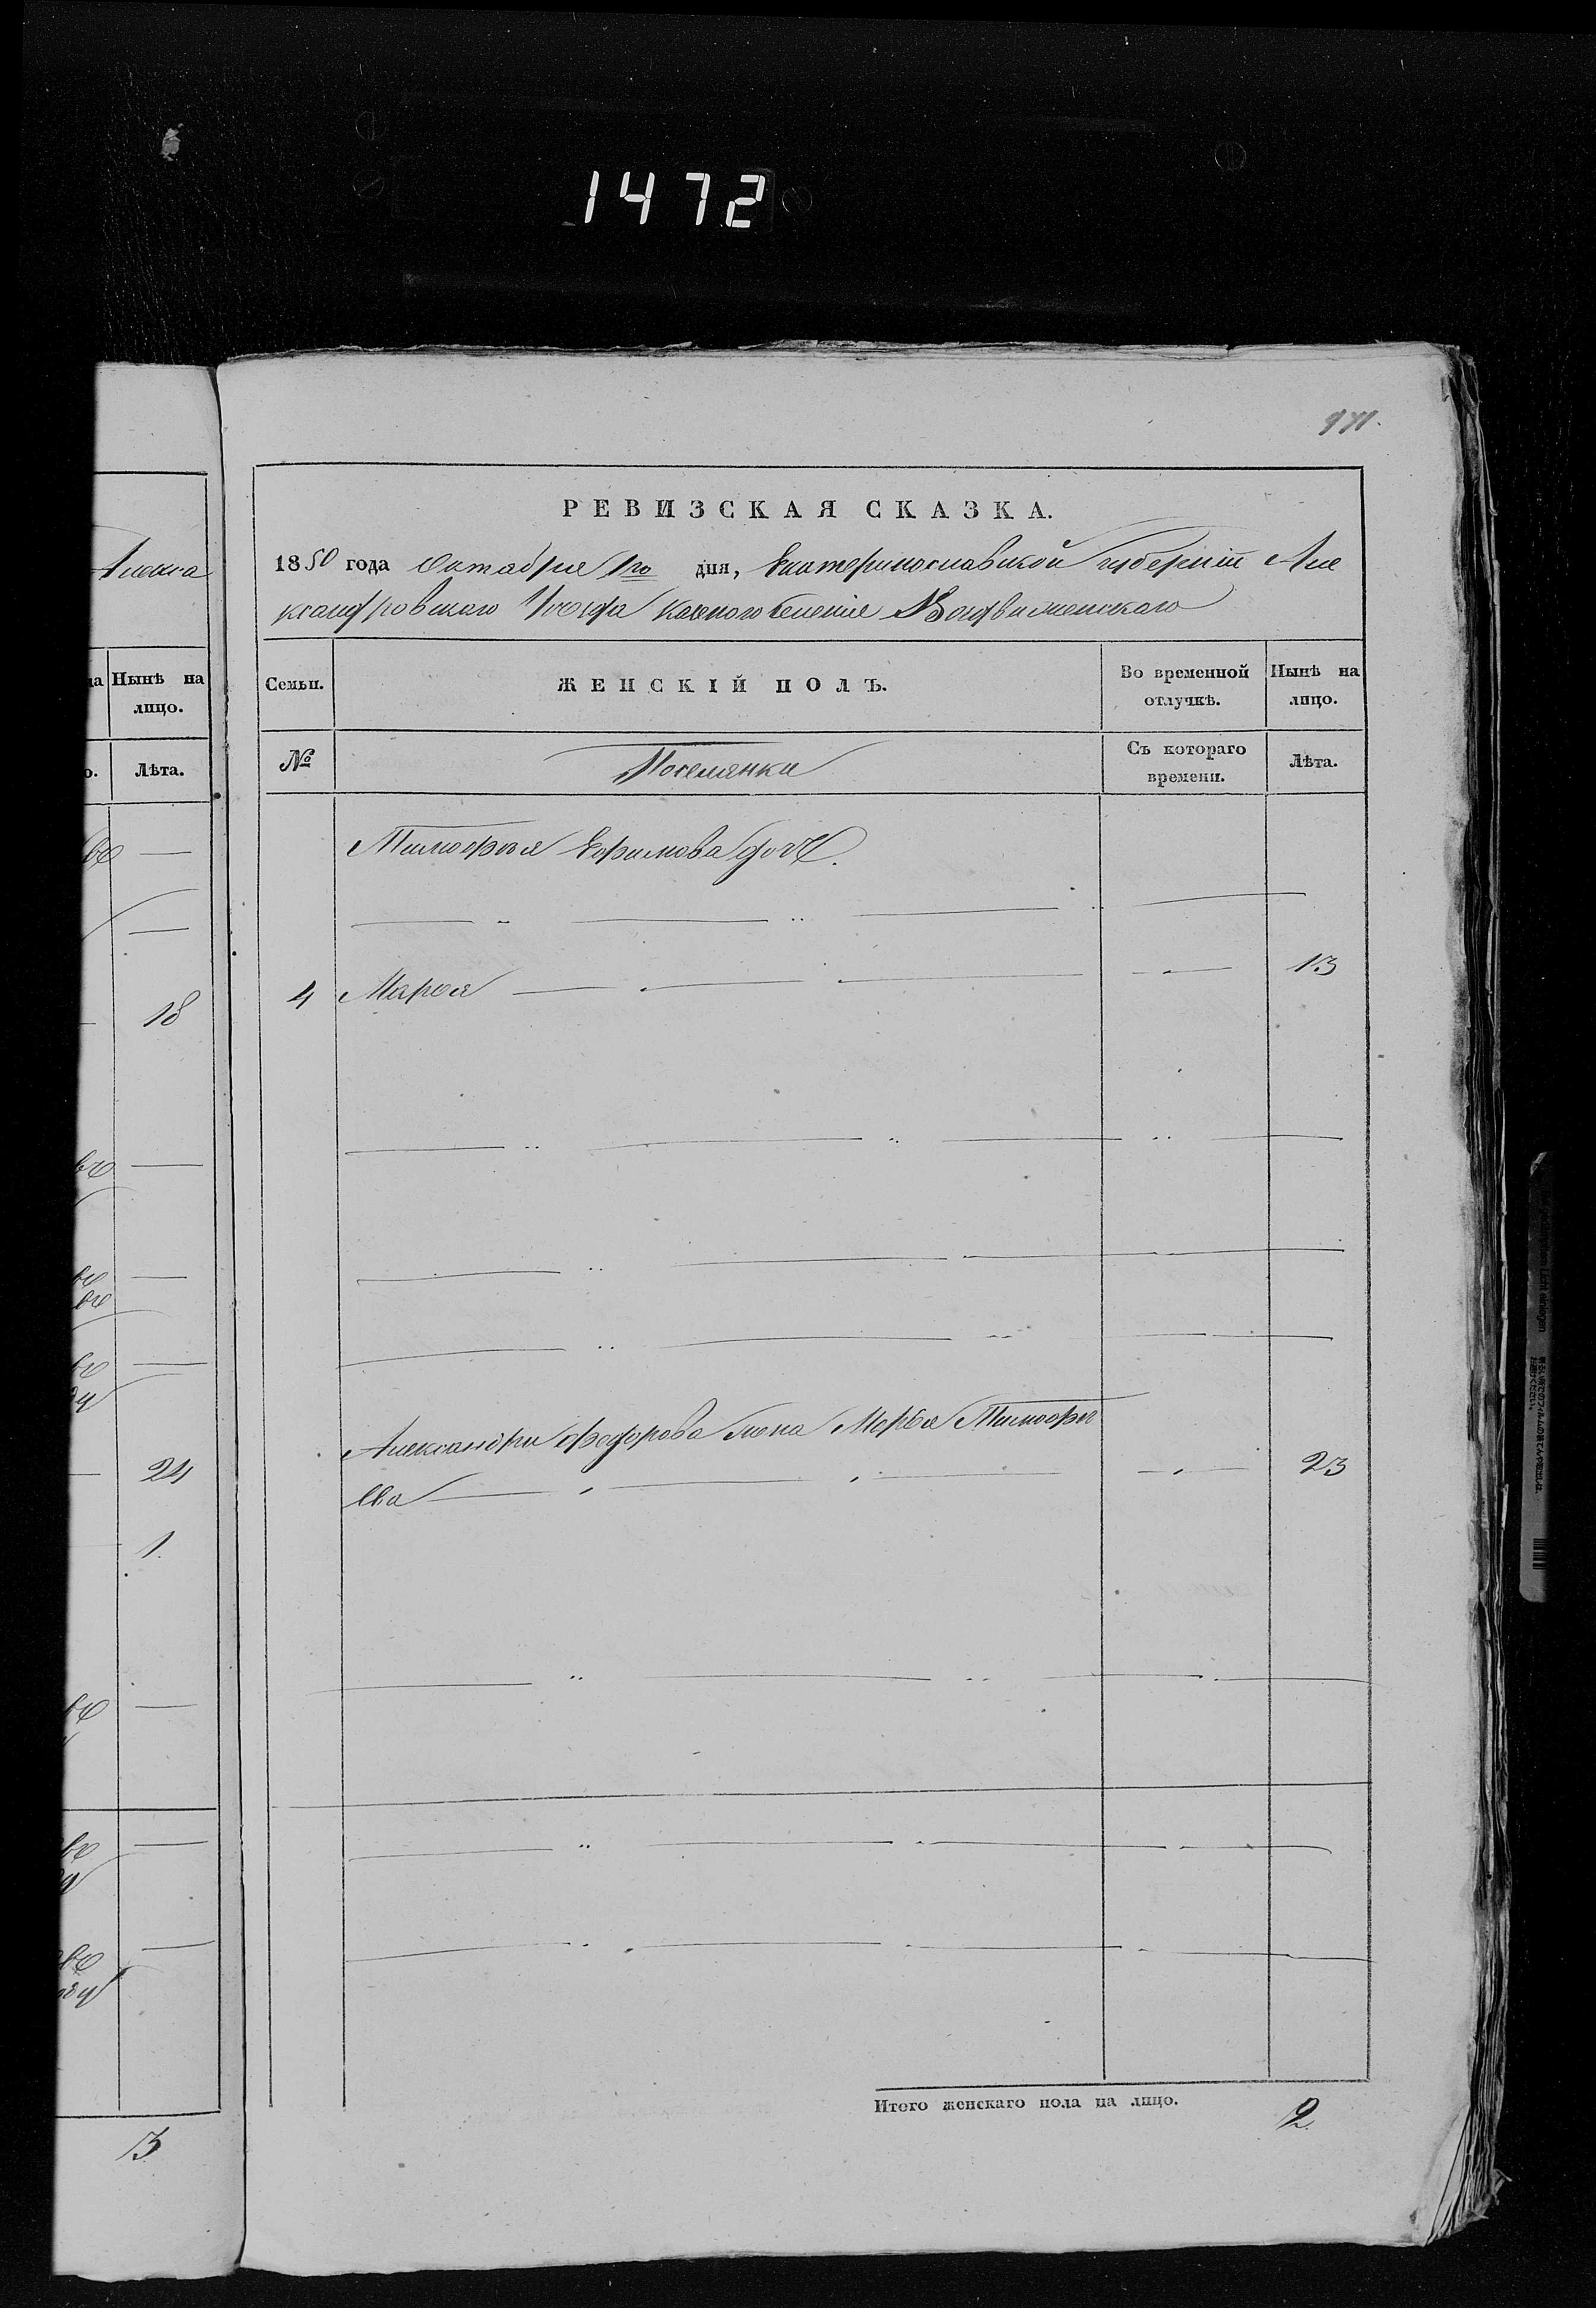 1472
971.
РЕВИЗСКАЯ СКАЗКА.
1850 года Октября 1го дня, Екатеринославской губерніи Але
ксандровскаго Уезда казеннаго селенія Воздвиженскаго
Семьи.
ЖЕНСКІЙ ПОЛЪ.
Во временной
отлучкѣ.
Нынѣ на
лицо.
№
Поселянки
Съ котораго
времени.
Лѣта.
Тимофея Ефимова дочь
4 Марья 13
Александры Федорова жена Марья Тимофе
ева 23
Итого женскаго пола на лицо. 2
Алекса
Нынѣ на
лицо.
Лѣта.
18
24
1.
3